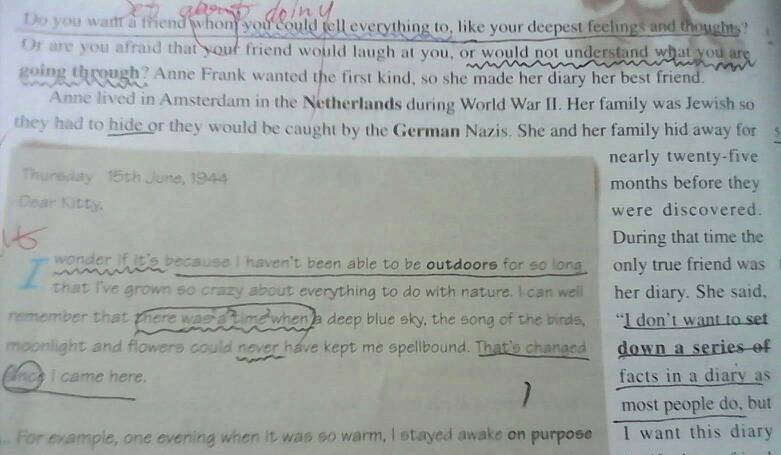 set about doing
Do you want a friend whom you could tell everything to, like your deepest feelings and thoughts?
Or are you afraid that your friend would laugh at you, or would not understand what you are
going through? Anne Frank wanted the first kind, so she made her diary her best friend.
Anne lived in Amsterdam in the Netherlands during World War II. Her family was Jewish so
they had to hide or they would be caught by the German Nazis. She and her family hid away for
nearly twenty-five
months before they
were discovered.
During that time the
only true friend was
her diary. She said,
“I don’t want to set
down a series of
facts in a diary as
most people do, but
I want this diary
Thursday 15th June, 1944
Dear Kitty,
I wonder if it's because I haven't been able to be outdoors for so long
that I've grown so crazy about everything to do with nature. I can well
remember that there was a time when a deep blue sky, the song of the birds,
moonlight and flowers could never have kept me spellbound. That's changed
since I came here.
... For example, one evening when it was so warm, I stayed awake on purpose